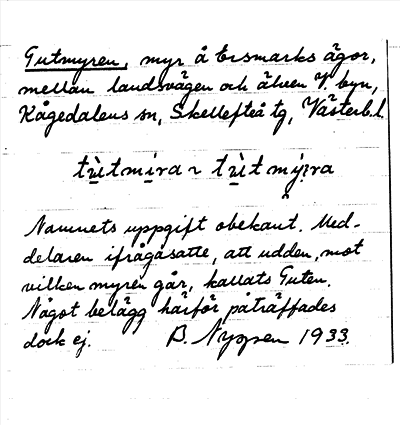 Gutmyren, myr å Ersmarks ägor,
mellan landsvägen och älven V. byn,
Kågedalens sn, Skellefteå tg, Västerb. l.
tù̲tmi̲ra ~ tù̲tmý̲ra
Namnets uppgift obekant. Med-
delaren ifrågasatte, att udden, mot
vilken myren går, kallats Guten.
Något belägg härför påträffades
dock ej. B. Nygren 1933.